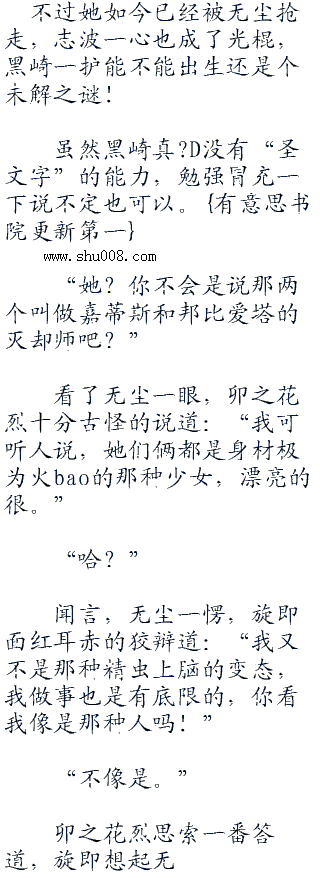 不过她如今已经被无尘抢
走，志波一心也成了光棍，
黑崎一护能不能出生还是个
未解之谜！
虽然黑崎真?D没有“圣
文字”的能力，勉强冒充一
下说不定也可以。{有意思书
院更新第一}
www.shu008.com
“她？你不会是说那两
个叫做嘉蒂斯和邦比爱塔的
灭却师吧？”
看了无尘一眼，卯之花
烈十分古怪的说道：“我可
听人说，她们俩都是身材极
为火bao的那种少女，漂亮的
很。”
“哈？”
闻言，无尘一愣，旋即
面红耳赤的狡辩道：“我又
不是那种精虫上脑的变态，
我做事也是有底限的，你看
我像是那种人吗！”
“不像是。”
卯之花烈思索一番答
道，旋即想起无